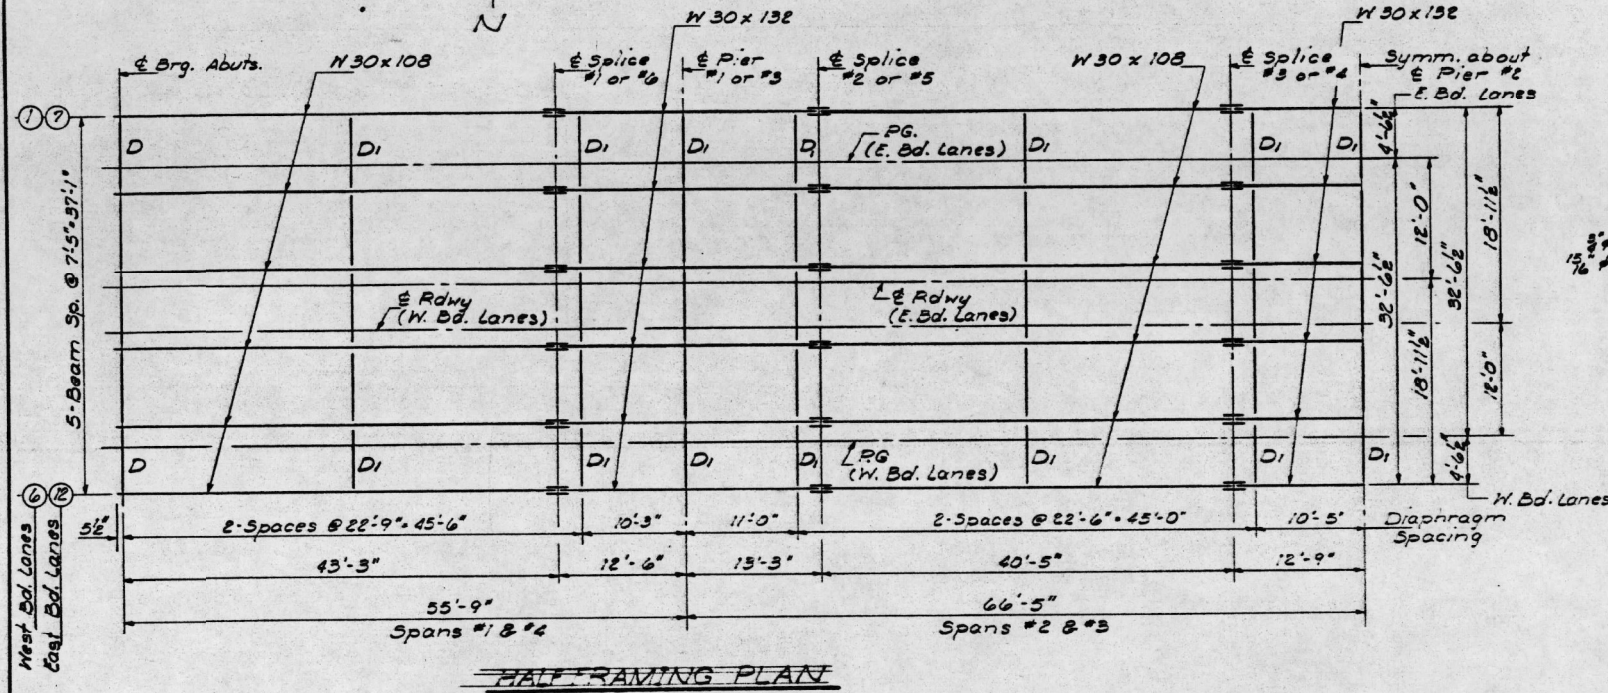 N
W 30 x 132
W 30 x 132
℄ Brg. Abuts.
W 30 x 108
℄ Splice
#1 or #6
℄ Pier
#1 or #3
℄ Splice
#2 or #5
W 30 x 108
℄ Splice
#3 or #4
Symm. about
℄ Pier #2
E. Bd. Lanes
1 7
D
D1
D1
D1
D1
P.G.
(E. Bd. Lanes)
D1
D1
D1
4'-6½"
5-Beam Sp. @ 7'-5"=37'-1"
℄ Rdwy
(W. Bd. Lanes)
℄ Rdwy
(E. Bd. Lanes)
32'-6½"
12'-0"
18'-11½"
32'-6½"
18'-11½"
12'-0"
4'-6½"
15/16
D
D1
D1
D1
D1
P.G.
(W. Bd. Lanes)
D1
D1
D1
6 12
W. Bd. Lanes
5½"
2-Spaces @ 22'-9"=45'-6"
10'-3"
11'-0"
2-Spaces @ 22'-6"=45'-0"
10'-5"
Diaphragm
Spacing
43'-3"
12'-6"
13'-3"
40'-5"
12'-9"
55'-9"
Spans #1 & #4
66'-5"
Spans #2 & #3
West Bd. Lanes
East Bd. Lanes
HALF FRAMING PLAN